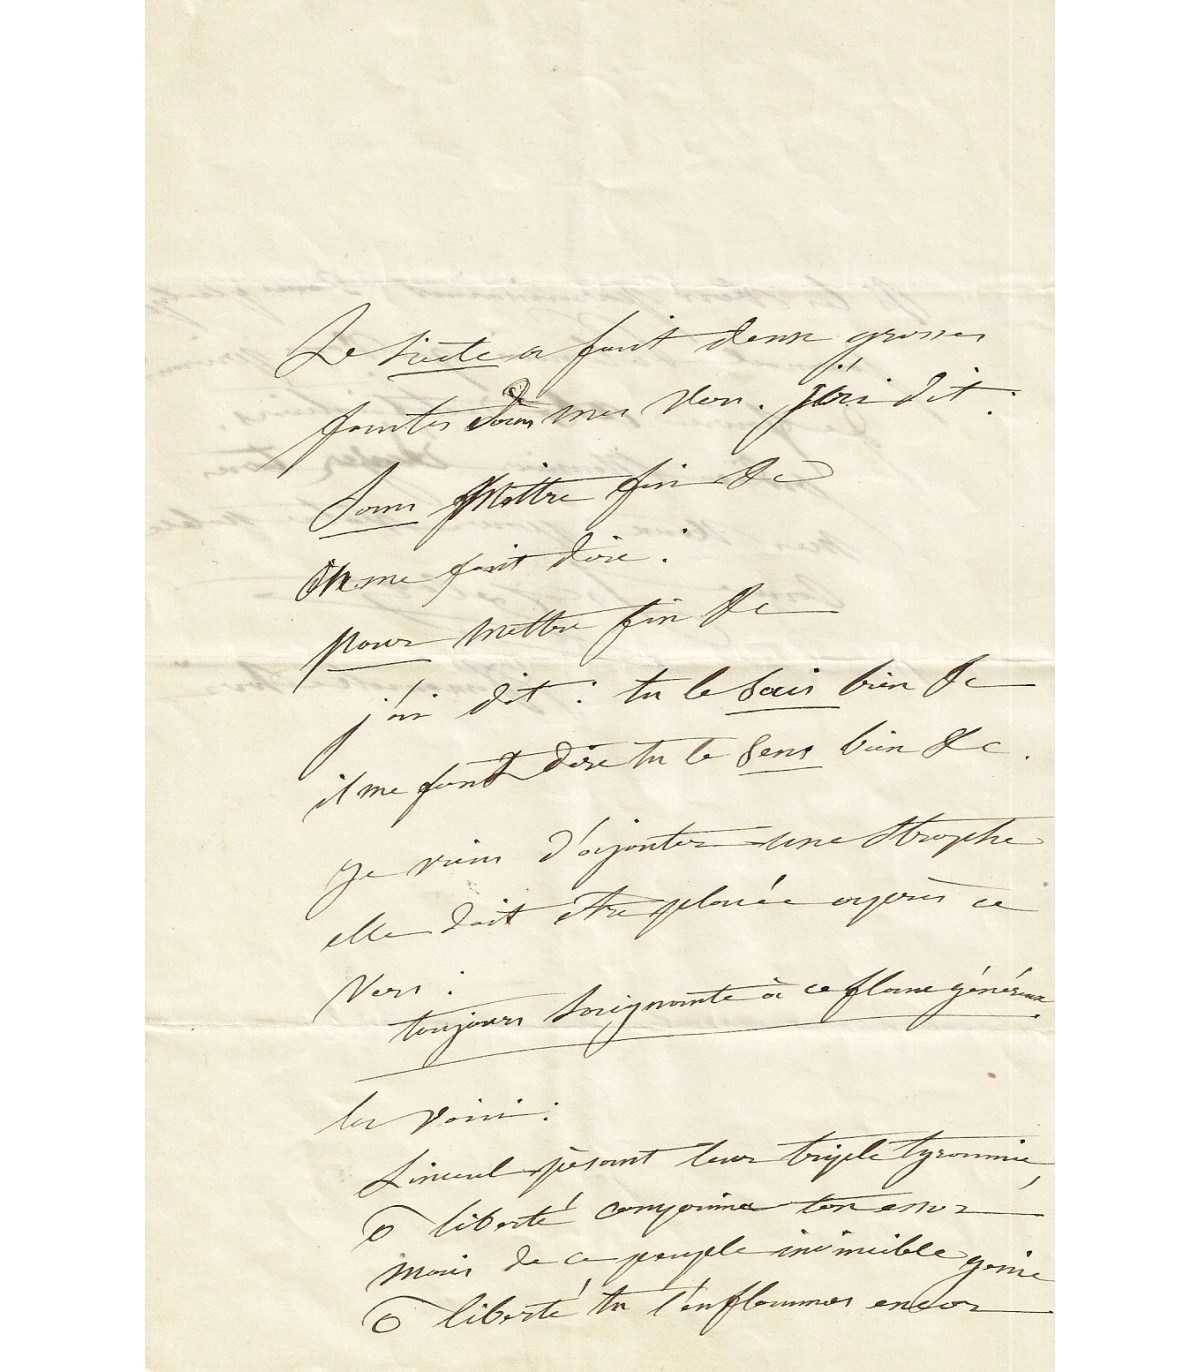 Le Siècle a fait deux grosses
fautes dans mes vers. j'ai dit :
Sans Mettre fin &c
On me fait dire :
pour mettre fin &c
j'ai dit : tu le sais bien &c
il me font dire tu le sens bien &c.
je viens d'ajouter une strophe
elle doit être placée après ce
vers :
toujours soignante à ce flanc généreux.
la voici :
Linceul pesant leur triple tyrannie,
ô liberté comprima ton essor
mais de ce peuple invincible génie
ô liberté tu l'enflammes encor